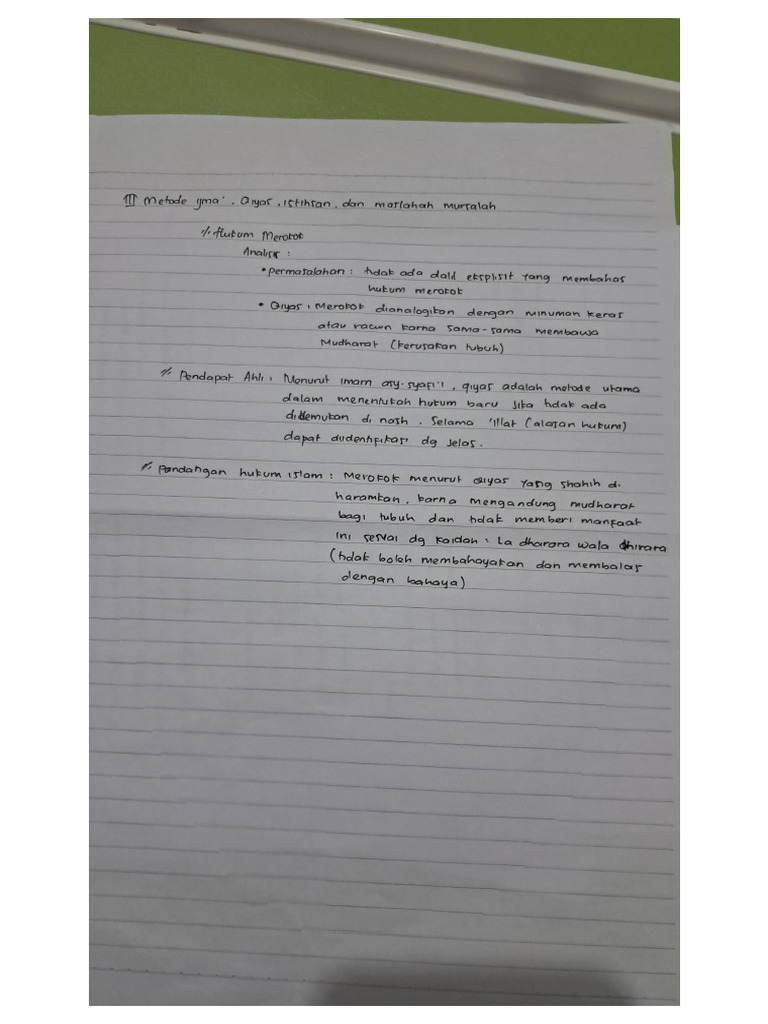 III Metode ijma', Qiyas, istihsan, dan maslahah mursalah
1/. Hukum Merokok
Analisis :
• permasalahan : tidak ada dalil eksplisit yang membahas
hukum merokok
• Qiyas : Merokok dianalogikan dengan minuman keras
atau racun karna sama-sama membawa
Mudharat (kerusakan tubuh)
Pendapat Ahli : Menurut imam asy-syafi'i, qiyas adalah metode utama
dalam menentukah hukum baru jika tidak ada
ditemukan di nash. Selama 'illat (alasan hukum)
dapat diidentifikasi dg jelas.
Pandangan hukum islam : Merokok menurut Qiyas yang shahih di
haramkan, karna mengandung mudharat
bagi tubuh dan tidak memberi manfaat
ini sesuai dg kaidah : La dharara wala dhirara
(tidak boleh membahayakan dan membalas
dengan bahaya)